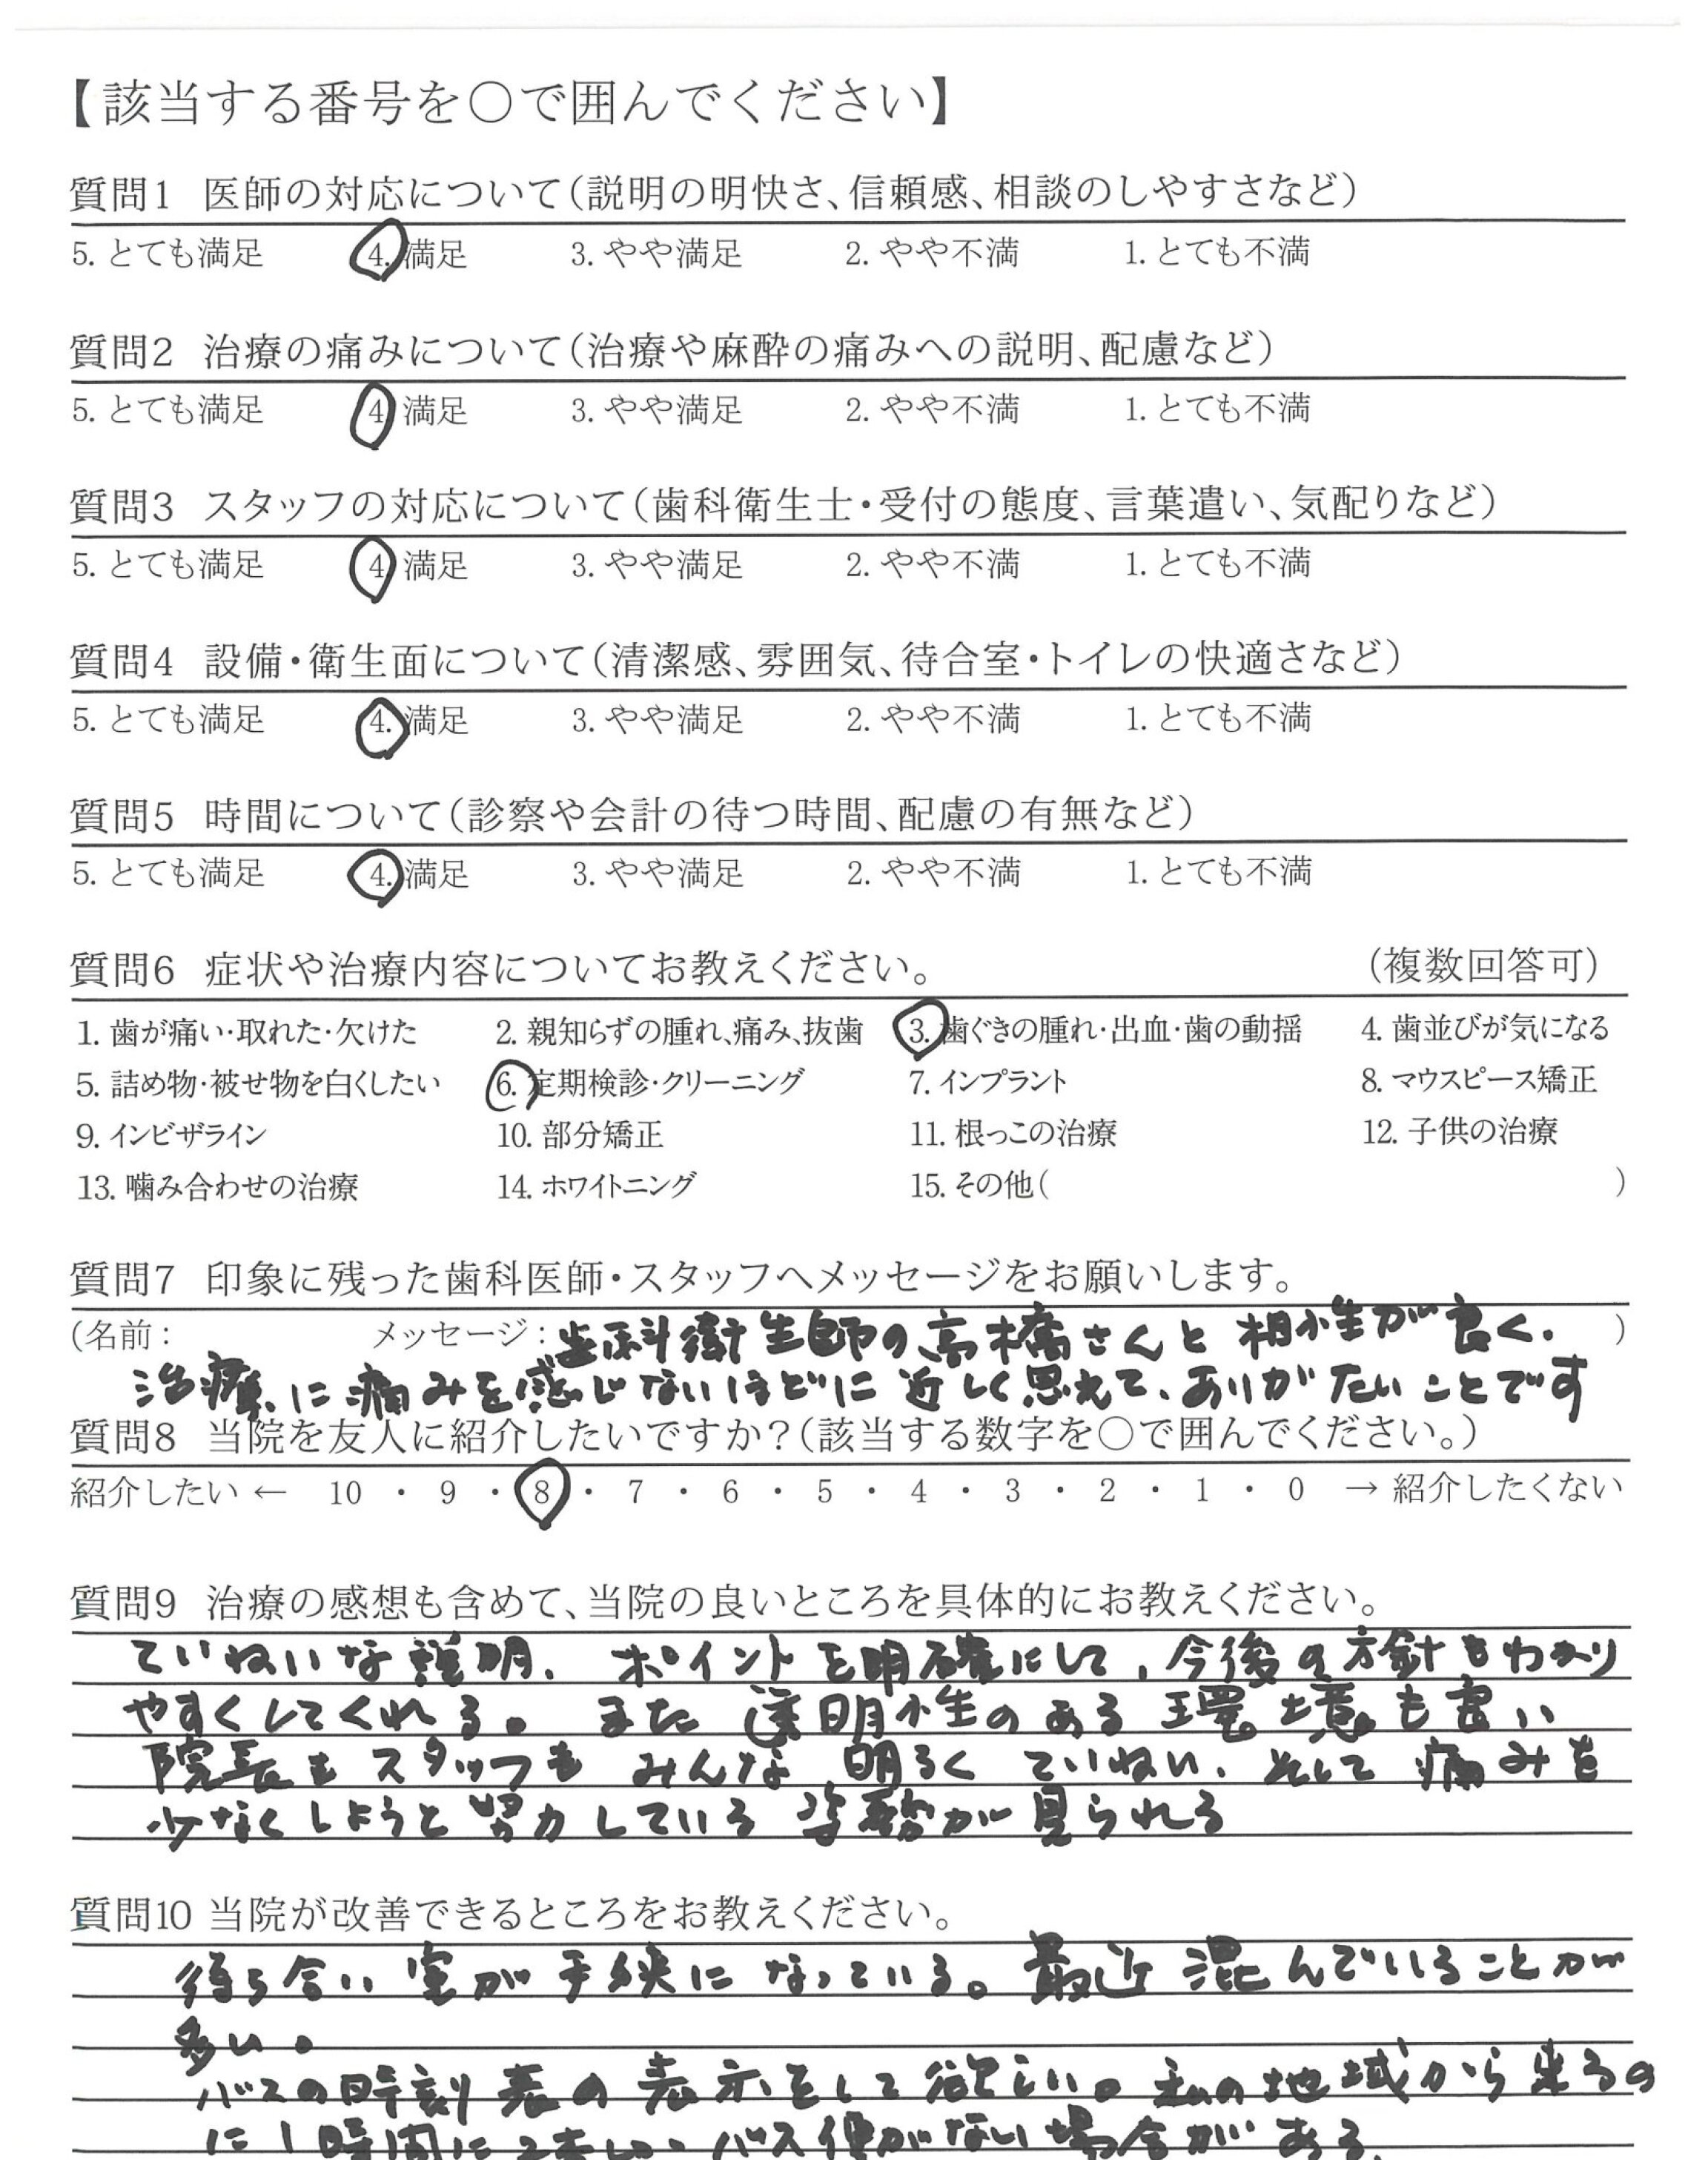 【該当する番号を○で囲んでください】
質問1 医師の対応について(説明の明快さ、信頼感、相談のしやすさなど)
5. とても満足 4. 満足 3. やや満足 2. やや不満 1. とても不満
質問2 治療の痛みについて(治療や麻酔の痛みへの説明、配慮など)
5. とても満足 4. 満足 3. やや満足 2. やや不満 1. とても不満
質問3 スタッフの対応について(歯科衛生士・受付の態度、言葉遣い、気配りなど)
5. とても満足 4. 満足 3. やや満足 2. やや不満 1. とても不満
質問4 設備・衛生面について(清潔感、雰囲気、待合室・トイレの快適さなど)
5. とても満足 4. 満足 3. やや満足 2. やや不満 1. とても不満
質問5 時間について(診察や会計の待つ時間、配慮の有無など)
5. とても満足 4. 満足 3. やや満足 2. やや不満 1. とても不満
質問6 症状や治療内容についてお教えください。 (複数回答可)
1. 歯が痛い・取れた・欠けた 2. 親知らずの腫れ、痛み、抜歯 3. 歯ぐきの腫れ・出血・歯の動揺 4. 歯並びが気になる
5. 詰め物・被せ物を白くしたい 6. 定期検診・クリーニング 7. インプラント 8. マウスピース矯正
9. インビザライン 10. 部分矯正 11. 根っこの治療 12. 子供の治療
13. 噛み合わせの治療 14. ホワイトニング 15. その他( )
質問7 印象に残った歯科医師・スタッフへメッセージをお願いします。
(名前: メッセージ: 歯科衛生師の高橋さんと相性が良く、 )
治療に痛みを感じないほどに近しく思えて、ありがたいことです
質問8 当院を友人に紹介したいですか?(該当する数字を○で囲んでください。)
紹介したい ← 10 ・ 9 ・ 8 ・ 7 ・ 6 ・ 5 ・ 4 ・ 3 ・ 2 ・ 1 ・ 0 → 紹介したくない
質問9 治療の感想も含めて、当院の良いところを具体的にお教えください。
ていねいな説明、ポイントを明確にして、今後の方針もわかり
やすくしてくれる。また透明性のある環境も良い
院長もスタッフもみんな明るくていねい、そして痛みを
少なくしようと努力している姿勢が見られる
質問10 当院が改善できるところをお教えください。
待ち合い室が手狭になっている。最近混んでいることが
多い。
バスの時刻表の表示をして欲しい。私の地域から来るの
に1時間に2本しかバス便がない場合がある。